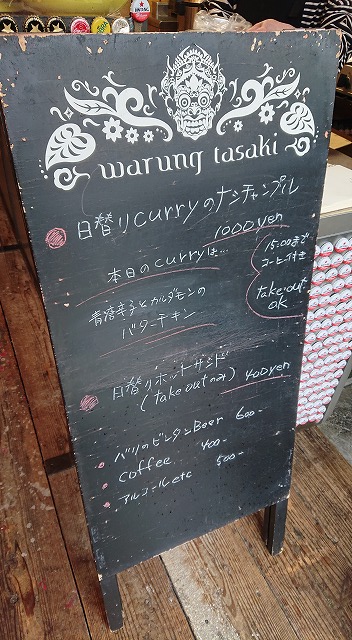 warung tasaki
日替りcurryのナシチャンプル
1000yen
本日のcurryは…
15:00まで
コーヒー付き
take-out
OK
青唐辛子とカルダモンの
バターチキン
日替りホットサンド
(take outのみ) 400yen
バリのビンタンBeer 600-
coffee 400-
アルコールetc 500-